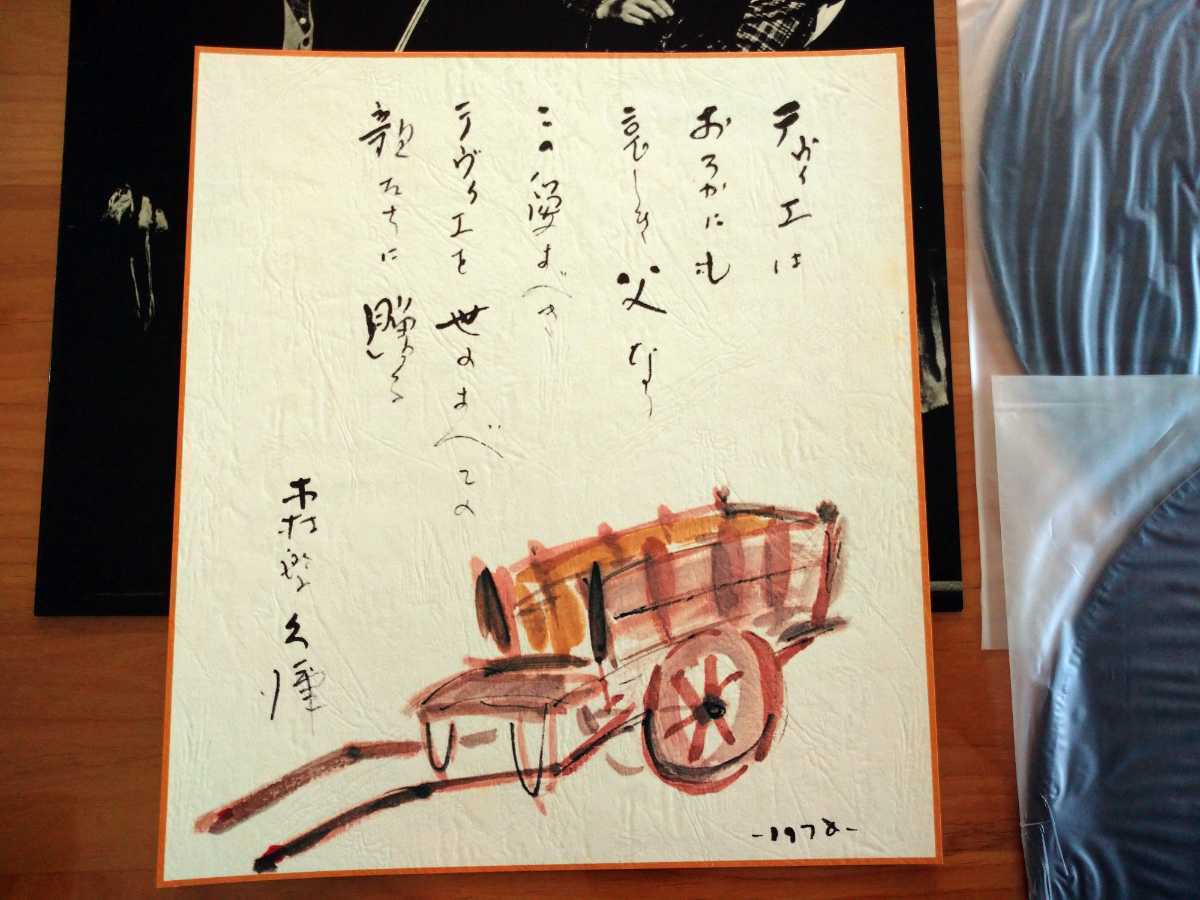 テヴィエは
おろかにも
哀しき父なり
この愛すべき
テヴィエを世のすべての
親たちに贈る
森繁久彌
-1978-